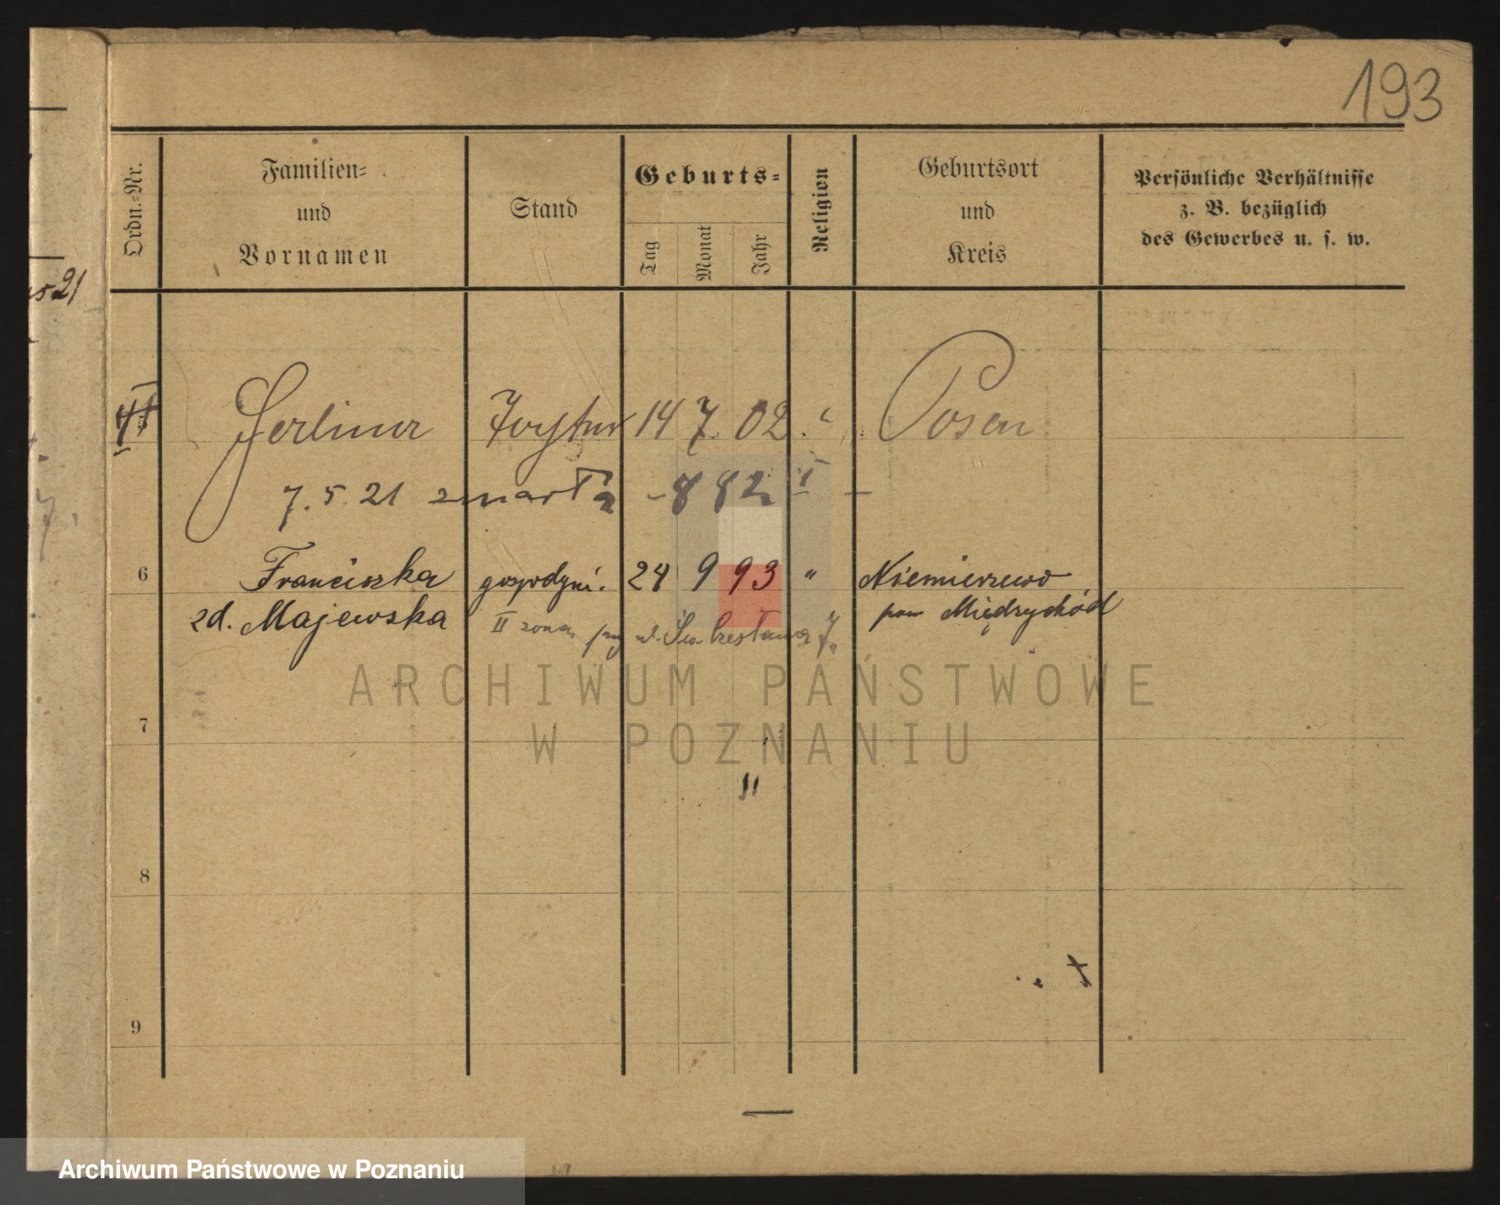 193
Ordn.-Nr.
Familien=
und
Vornamen
Stand
Geburts=
Tag
Monat
Jahr
Religion
Geburtsort
und
Kreis
Persönliche Verhältnisse
z. B. bezüglich
des Gewerbes u. s. w.
21
14 7 02 " Posen
7. 5. 21 zmarła - 882 I -
6 Franciszka gospodyni. 24 9 93 " Niemierzewo
zd. Majewska pow Międzychód
II żona
ARCHIWUM PAŃSTWOWE
W POZNANIU
7
"
8
9
Archiwum Państwowe w Poznaniu